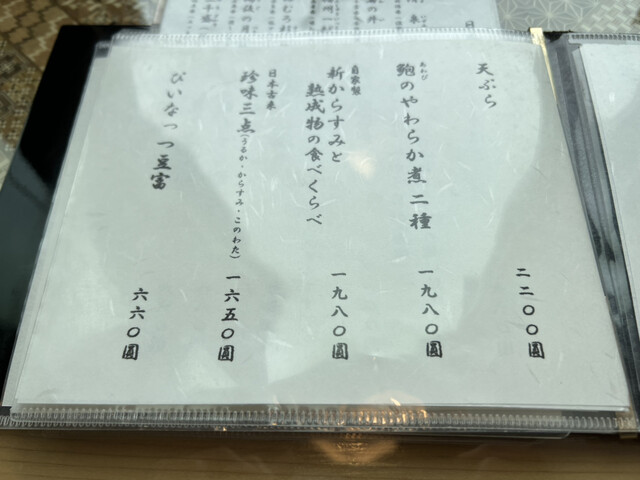 天ぷら
二二〇〇圓
あわび
鮑のやわらか煮二種
一九八〇圓
自家製
新からすみと
熟成物の食べくらべ
一九八〇圓
日本古来
珍味三点(うるか・からすみ・このわた)
一六五〇圓
ぴいなっつ豆富
六六〇圓